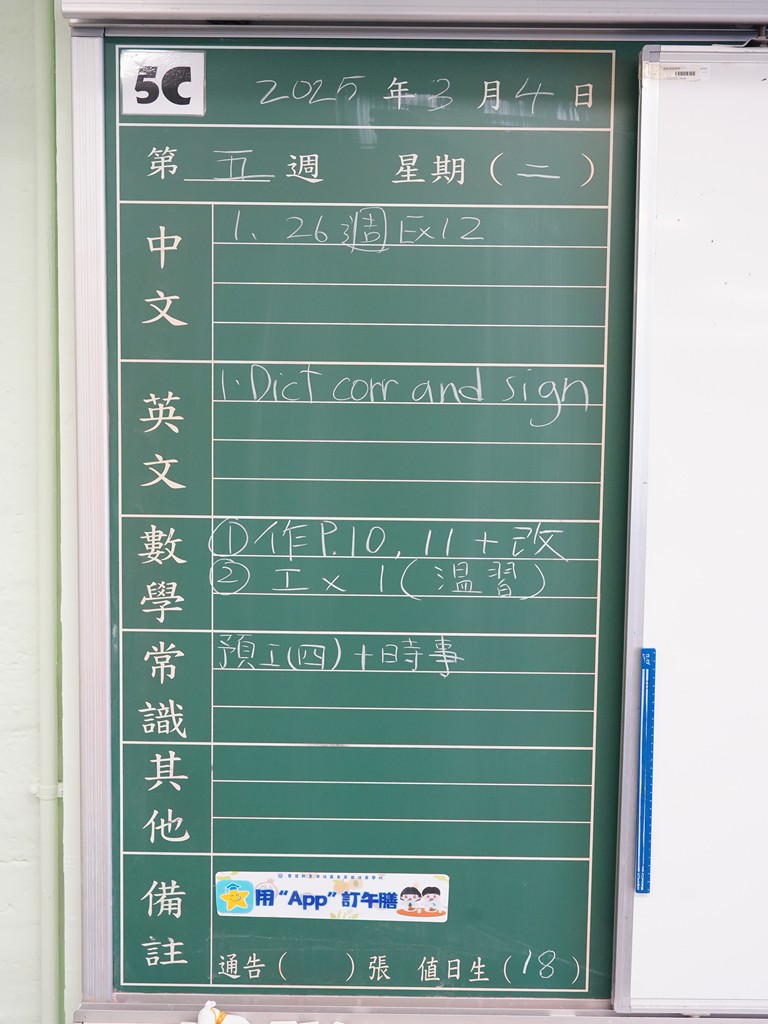 5C 2025年3月4日
第五週 星期(二)
中文
1、26週告Ex12
英文
1. Dict corr and sign
數學
①作P.10, 11 + 改
②工 x 1(溫習)
常識
預工(四)+時事
其他
備註
用“App”訂午膳
通告( )張 值日生(18)